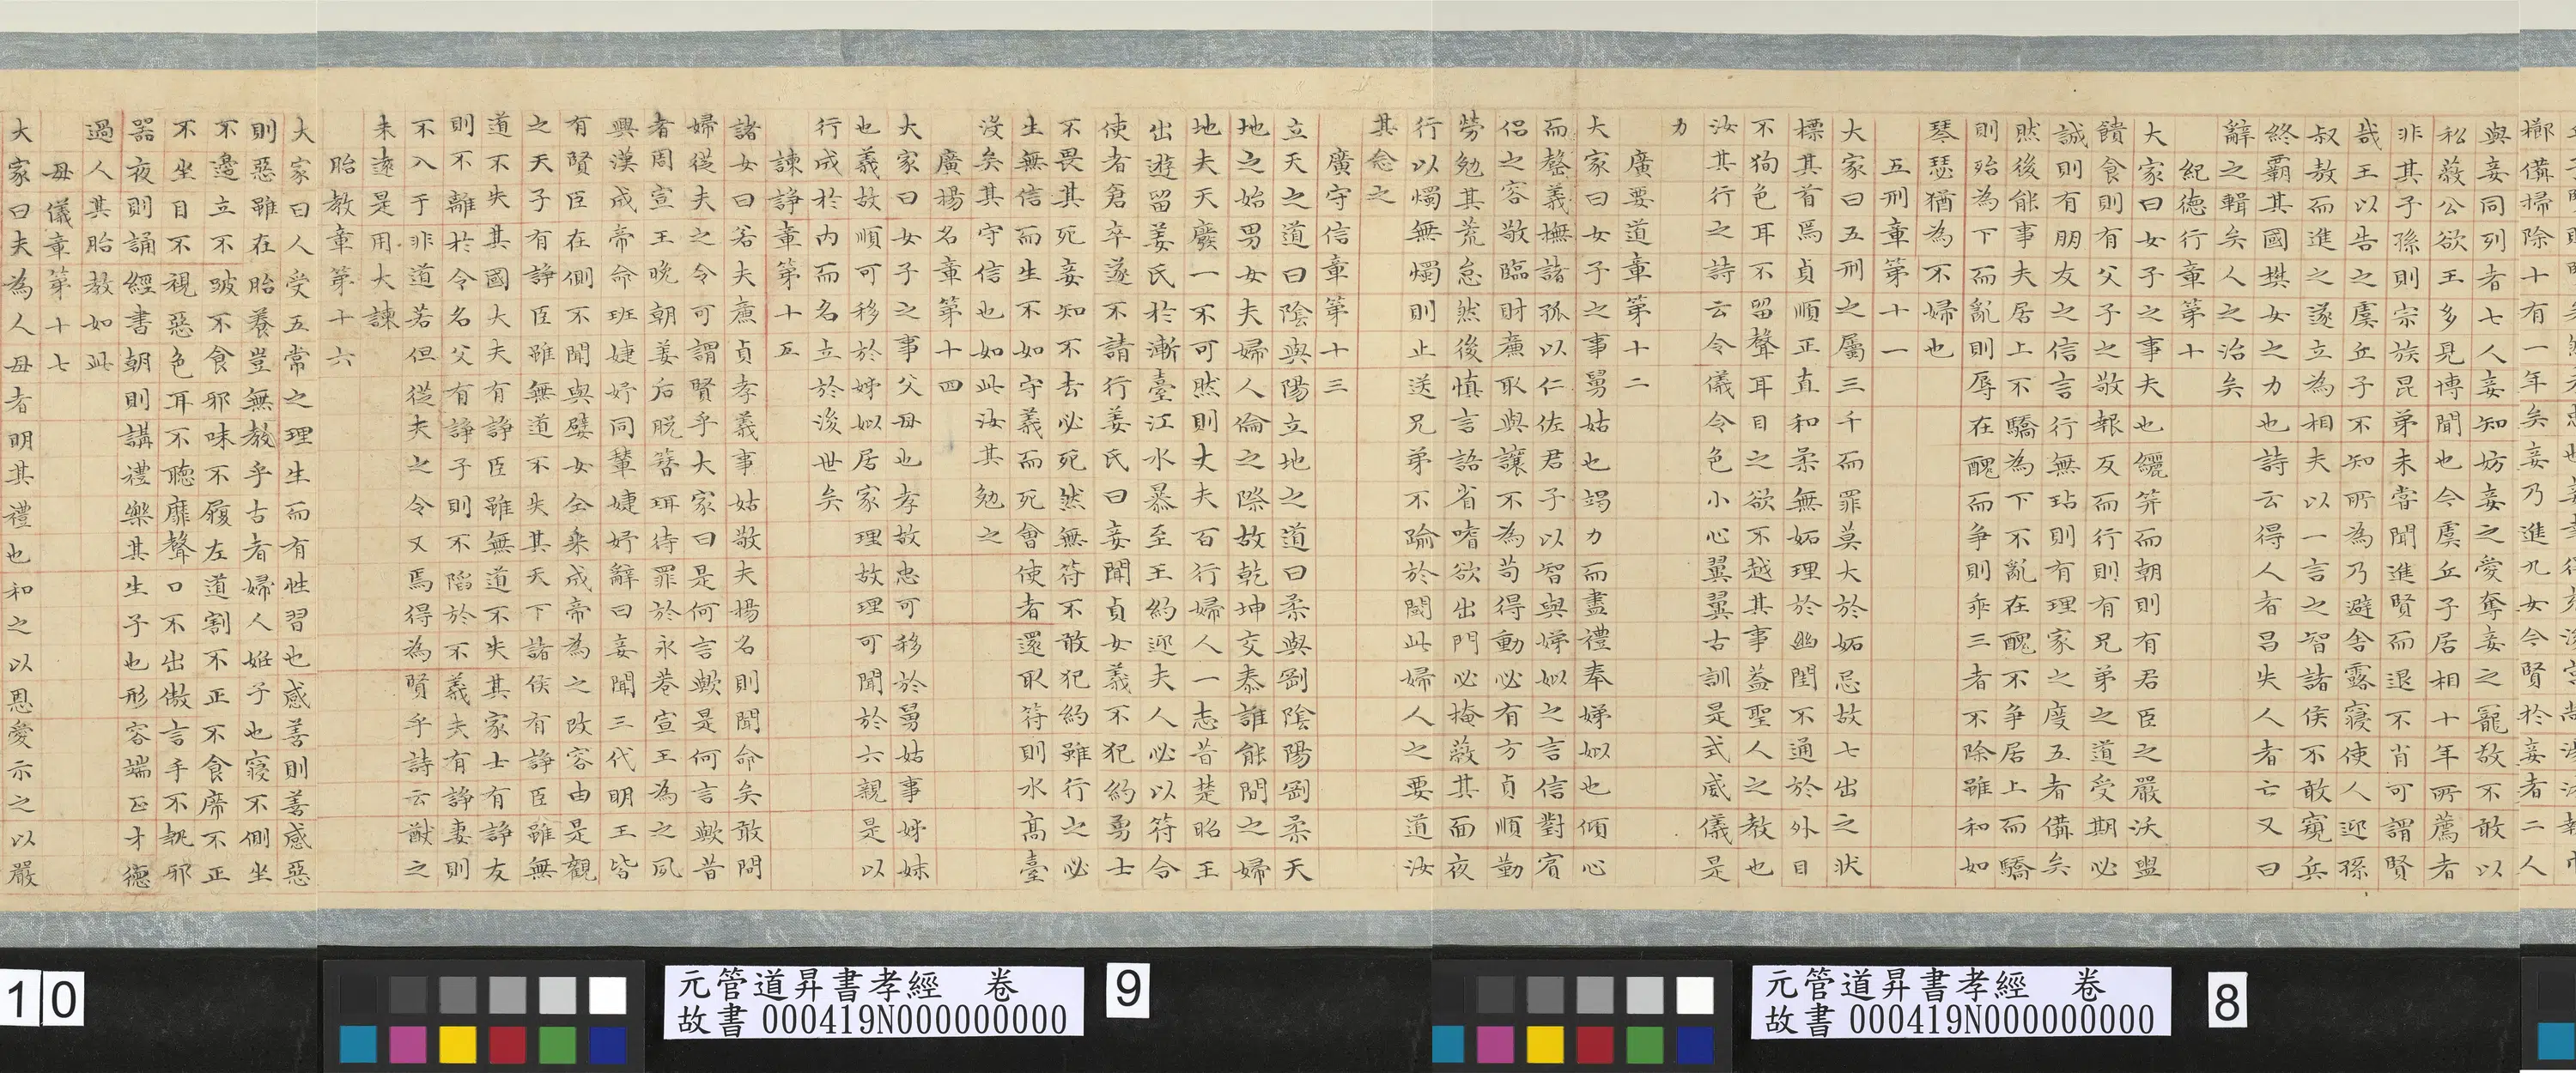 櫛備掃除十有一年矣妾乃進九女今賢於妾者二人
與妾同列者七人妾知妨妾之愛奪妾之寵敢不敢以
私蔽公欲王多見博聞也今虞丘子居相十年所薦者
非其子孫則宗族昆弟未嘗聞進賢而退不肖可謂賢
哉王以告之虞丘子不知所為乃避舍露寢使人迎孫
叔敖而進之遂立為相夫以一言之智諸侯不敢窺兵
終霸其國樊女之力也詩云得人者昌失人者亡又曰
辭之輯矣人之治矣
紀德行章第十
大家曰女子之事夫也纚笄而朝則有君臣之嚴沃盥
饋食則有父子之敬報反而行則有兄弟之道受期必
誠則有朋友之信言行無玷則有理家之度五者備矣
然後能事夫居上不驕為下不亂在醜不爭居上而驕
則殆為下而亂則辱在醜而爭則乖三者不除雖和如
琴瑟猶為不婦也
五刑章第十一
大家曰五刑之屬三千而罪莫大於妬忌故七出之狀
標其首焉貞順正直和柔無妬理於幽閨不通於外目
不狥色耳不留聲耳目之欲不越其事蓋聖人之教也
汝其行之詩云令儀令色小心翼翼古訓是式威儀是
力
廣要道章第十二
大家曰女子之事舅姑也竭力而盡禮奉娣姒也傾心
而罄義撫諸孤以仁佐君子以智與娣姒之言信對賓
侶之容敬臨財廉取與讓不為苟得動必有方貞順勤
勞勉其荒怠然後慎言語省嗜欲出門必掩蔽其面夜
行以燭無燭則止送兄弟不踰於閾此婦人之要道汝
其念之
廣守信章第十三
立天之道曰陰與陽立地之道曰柔與剛陰陽剛柔天
地之始男女夫婦人倫之際故乾坤交泰誰能間之婦
地夫天廢一不可然則丈夫百行婦人一志昔楚昭王
出遊留姜氏於漸臺江水暴至王約迎夫人必以符合
使者倉卒遂不請行姜氏曰妾聞貞女義不犯約勇士
不畏其死妾知不去必死然無符不敢犯約雖行之必
生無信而生不如守義而死會使者還取符則水高臺
沒矣其守信也如此汝其勉之
廣揚名章第十四
大家曰女子之事父母也孝故忠可移於舅姑事姊妹
也義故順可移於娣姒居家理故理可聞於六親是以
行成於內而名立於後世矣
諫諍章第十五
諸女曰若夫廉貞孝義事姑敬夫揚名則聞命矣敢問
婦從夫之令可謂賢乎大家曰是何言歟是何言歟昔
者周宣王晚朝姜后脫簪珥待罪於永巷宣王為之夙
興漢成帝命班婕妤同輦婕妤辭曰妾聞三代明王皆
有賢臣在側不聞與嬖女仝乘成帝為之改容由是觀
之天子有諍臣雖無道不失其天下諸侯有諍臣雖無
道不失其國大夫有諍臣雖無道不失其家士有諍友
則不離於令名父有諍子則不陷於不義夫有諍妻則
不入于非道若但從夫之令又焉得為賢乎詩云猷之
未遠是用大諫
胎教章第十六
大家曰人受五常之理生而有性習也感善則善感惡
則惡雖在胎養豈無教乎古者婦人妊子也寢不側坐
不邊立不跛不食邪味不履左道割不正不食席不正
不坐目不視惡色耳不聽靡聲口不出傲言手不執邪
器夜則誦經書朝則講禮樂其生子也形容端正才德
過人其胎教如此
母儀章第十七
大家曰夫為人母者明其禮也和之以恩愛示之以嚴
元管道昇書孝經 卷
故書000419N000000000
8
元管道昇書孝經 卷
故書000419N000000000
9
10